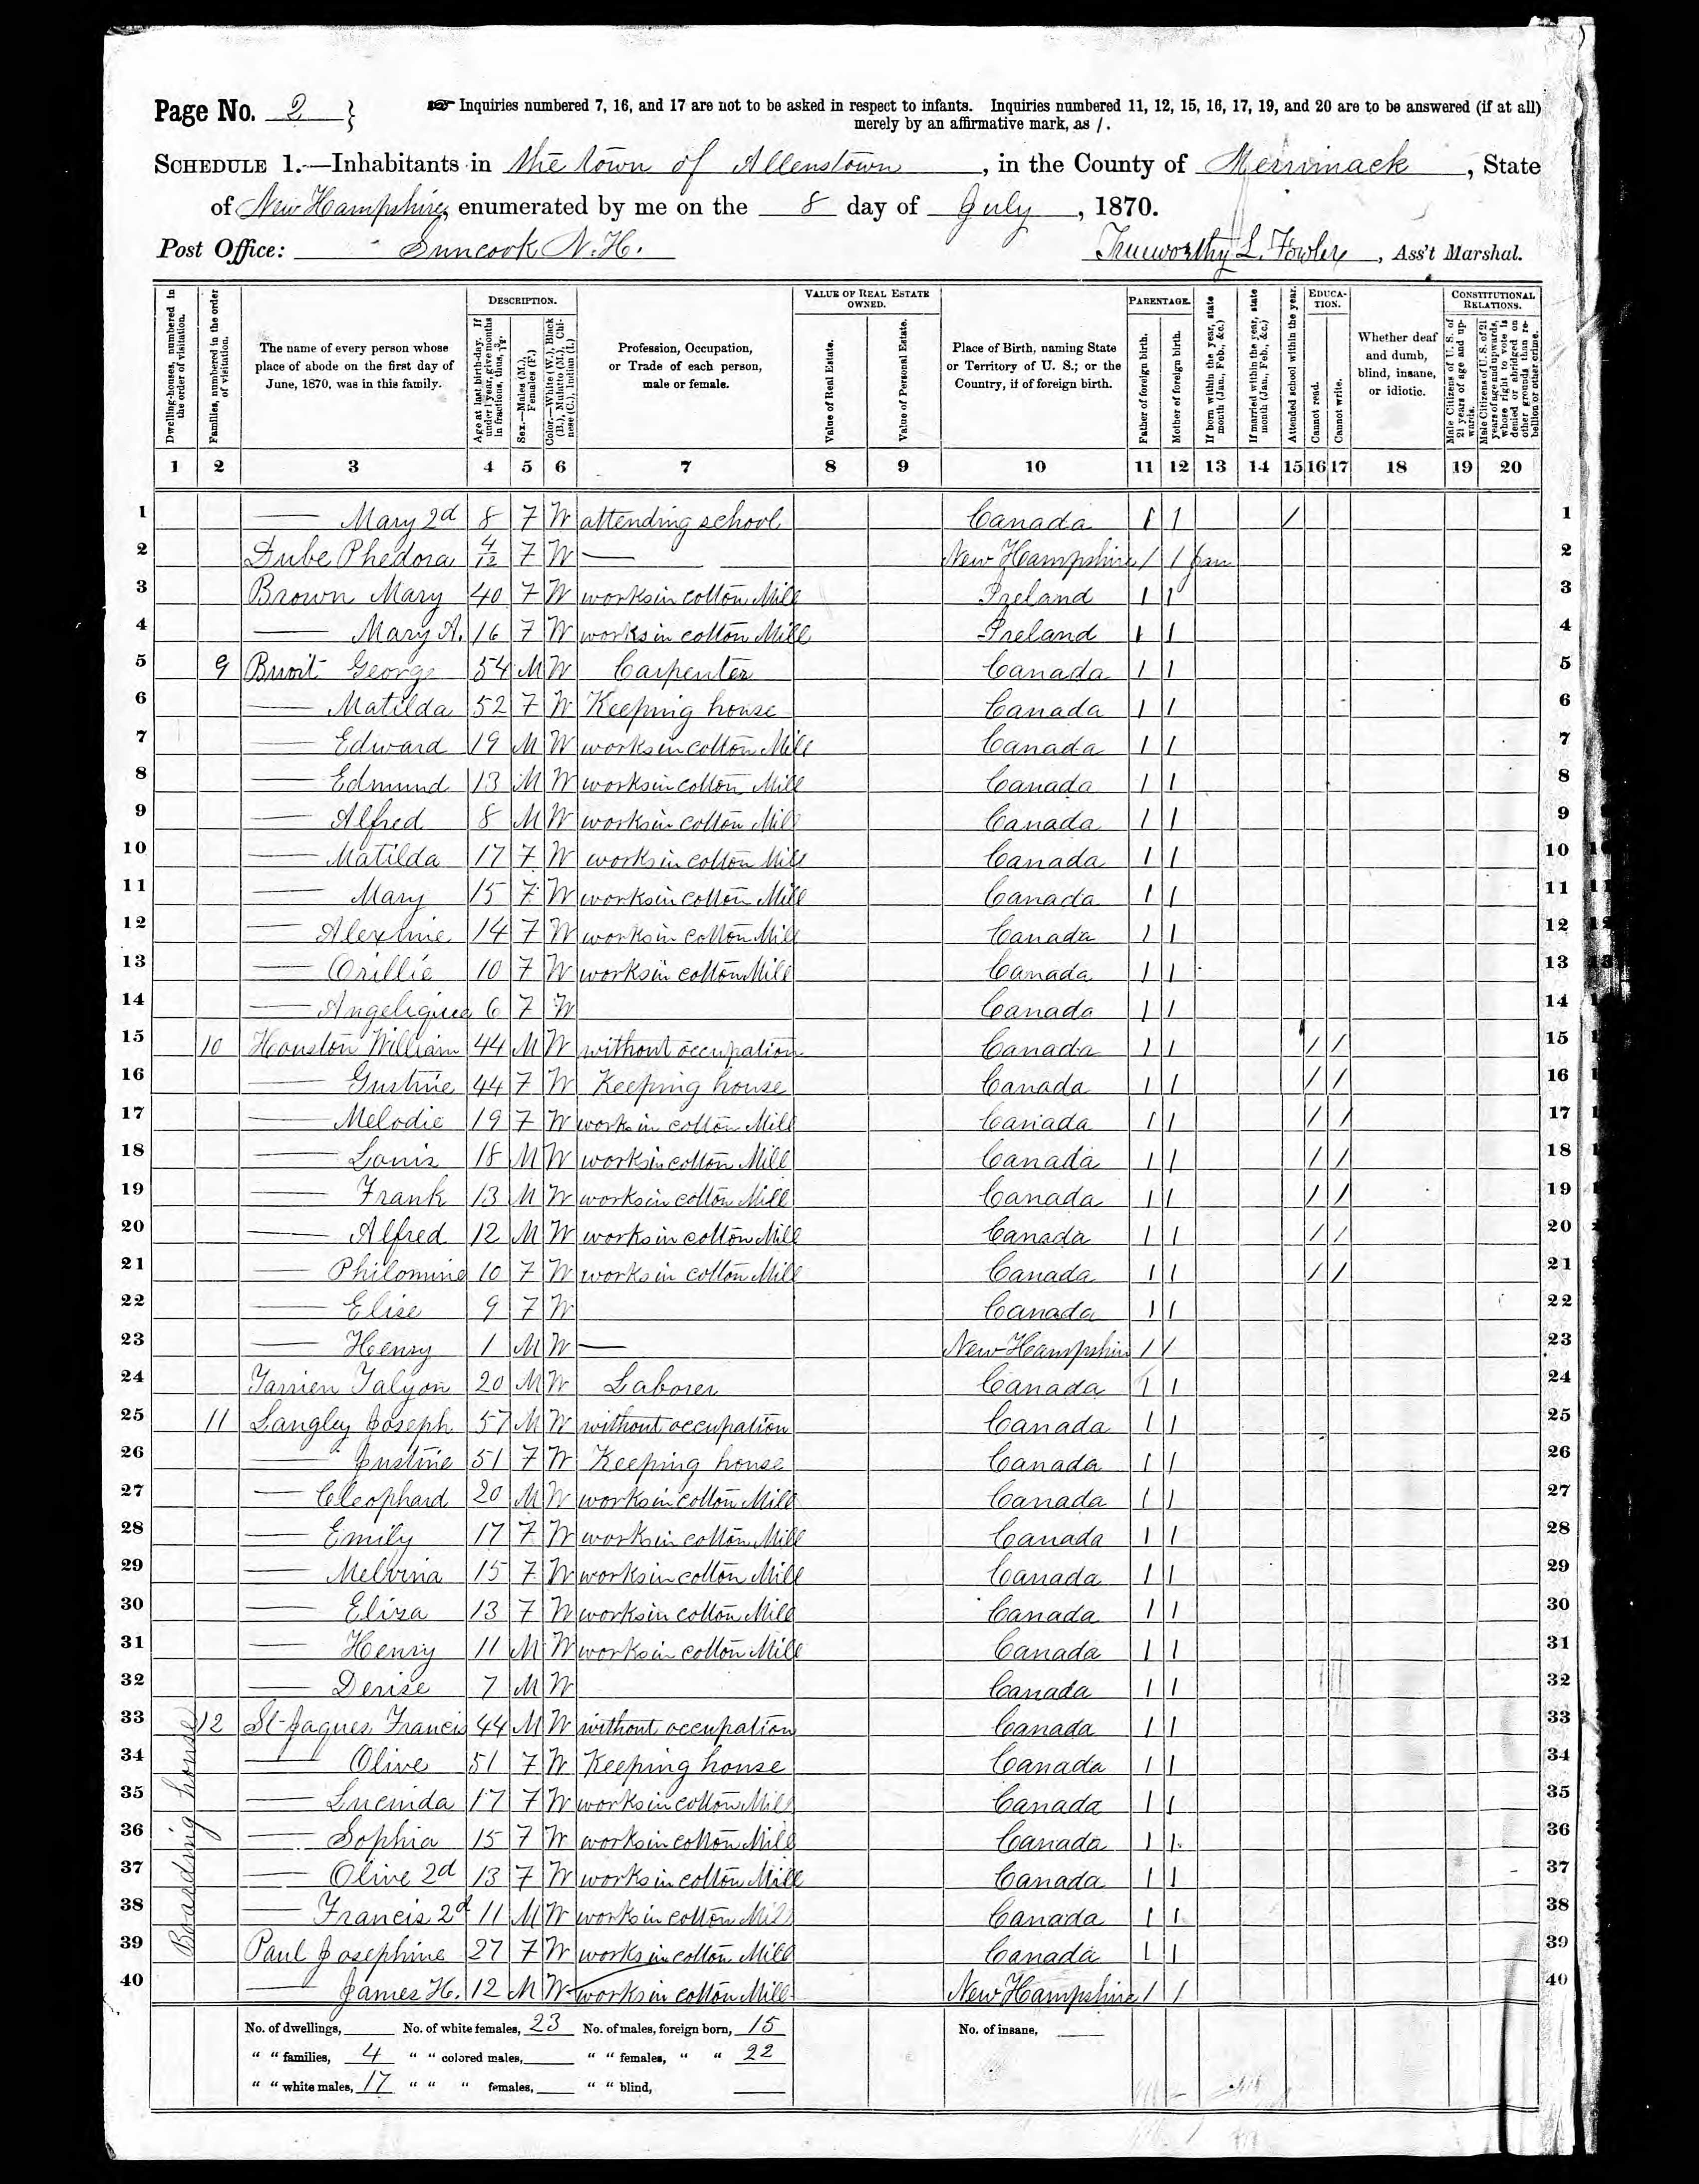 Page No. 2 }
☞ Inquiries numbered 7, 16, and 17 are not to be asked in respect to infants. Inquiries numbered 11, 12, 15, 16, 17, 19, and 20 are to be answered (if at all)
merely by an affirmative mark, as /.
SCHEDULE 1.—Inhabitants in the town of Allenstown, in the County of Merrimack, State
of New Hampshire, enumerated by me on the 8 day of July, 1870.
Post Office: Suncook N.H. Trueworthy L. Fowler, Ass't Marshal.
Dwelling-houses, numbered in the order of visitation.
Families, numbered in the order of visitation.
The name of every person whose place of abode on the first day of June, 1870, was in this family.
DESCRIPTION.
Age at last birth-day. If under 1 year, give months in fractions, thus, 3/12.
Sex.—Males (M.), Females (F.)
Color.—White (W.), Black (B.), Mulatto (M.), Chinese (C.), Indian (I.)
Profession, Occupation, or Trade of each person, male or female.
VALUE OF REAL ESTATE OWNED.
Value of Real Estate.
Value of Personal Estate.
Place of Birth, naming State or Territory of U. S.; or the Country, if of foreign birth.
PARENTAGE.
Father of foreign birth.
Mother of foreign birth.
If born within the year, state month (Jan., Feb., &c.)
If married within the year, state month (Jan., Feb., &c.)
Attended school within the year.
EDUCATION.
Cannot read.
Cannot write.
Whether deaf and dumb, blind, insane, or idiotic.
CONSTITUTIONAL RELATIONS.
Male Citizens of U. S. of 21 years of age and upwards.
Male Citizens of U. S. of 21 years of age and upwards, whose right to vote is denied or abridged on other grounds than rebellion or other crime.
1 2 3 4 5 6 7 8 9 10 11 12 13 14 15 16 17 18 19 20
1 — Mary 2d 8 F W attending school Canada / / / 1
2 Dube Phedora 4/12 F W — New Hampshire / / Jan 2
3 Brown Mary 40 F W works in cotton Mill Ireland / / 3
4 — Mary A. 16 F W works in cotton Mill Ireland / / 4
5 9 George 54 M W Carpenter Canada / / 5
6 — Matilda 52 F W Keeping house Canada / / 6
7 — Edward 19 M W works in cotton Mill Canada / / 7
8 — Edmund 13 M W works in cotton Mill Canada / / 8
9 — Alfred 8 M W works in cotton Mill Canada / / 9
10 — Matilda 17 F W works in cotton Mill Canada / / 10
11 — Mary 15 F W works in cotton Mill Canada / / 11
12 — Alexhine 14 F W works in cotton Mill Canada / / 12
13 — Orillie 10 F W works in cotton Mill Canada / / 13
14 — Angelique 6 F W Canada / / 14
15 10 Houston William 44 M W without occupation Canada / / / / 15
16 — Gustine 44 F W Keeping house Canada / / / / 16
17 — Melodie 19 F W works in cotton Mill Canada / / / / 17
18 — Louis 18 M W works in cotton Mill Canada / / / / 18
19 — Frank 13 M W works in cotton Mill Canada / / / / 19
20 — Alfred 12 M W works in cotton Mill Canada / / / / 20
21 — Philomine 10 F W works in cotton Mill Canada / / / / 21
22 — Elise 9 F W Canada / / 22
23 — Henry 1 M W — New Hampshire / / 23
24 20 M W Laborer Canada / / 24
25 11 Langley Joseph 57 M W without occupation Canada / / 25
26 — Justine 51 F W Keeping house Canada / / 26
27 — Cleophard 20 M W works in cotton Mill Canada / / 27
28 — Emily 17 F W works in cotton Mill Canada / / 28
29 — Melvina 15 F W works in cotton Mill Canada / / 29
30 — Eliza 13 F W works in cotton Mill Canada / / 30
31 — Henry 11 M W works in cotton Mill Canada / / 31
32 — Derise 7 M W Canada / / 32
33 12 St-Jaques Francis 44 M W without occupation Canada / / 33
34 — Olive 51 F W Keeping house Canada / / 34
35 — Lucinda 17 F W works in cotton Mill Canada / / 35
36 — Sophia 15 F W works in cotton Mill Canada / / 36
37 — Olive 2d 13 F W works in cotton Mill Canada / / 37
38 — Francis 2d 11 M W works in cotton Mill Canada / / 38
39 Paul Josephine 27 F W works in cotton Mill Canada / / 39
40 — James H. 12 M W works in cotton Mill New Hampshire / / 40
Boarding house
No. of dwellings, No. of white females, 23 No. of males, foreign born, 15 No. of insane,
" " families, 4 " " colored males, " " females, " " 22
" " white males, 17 " " " females, " " blind,